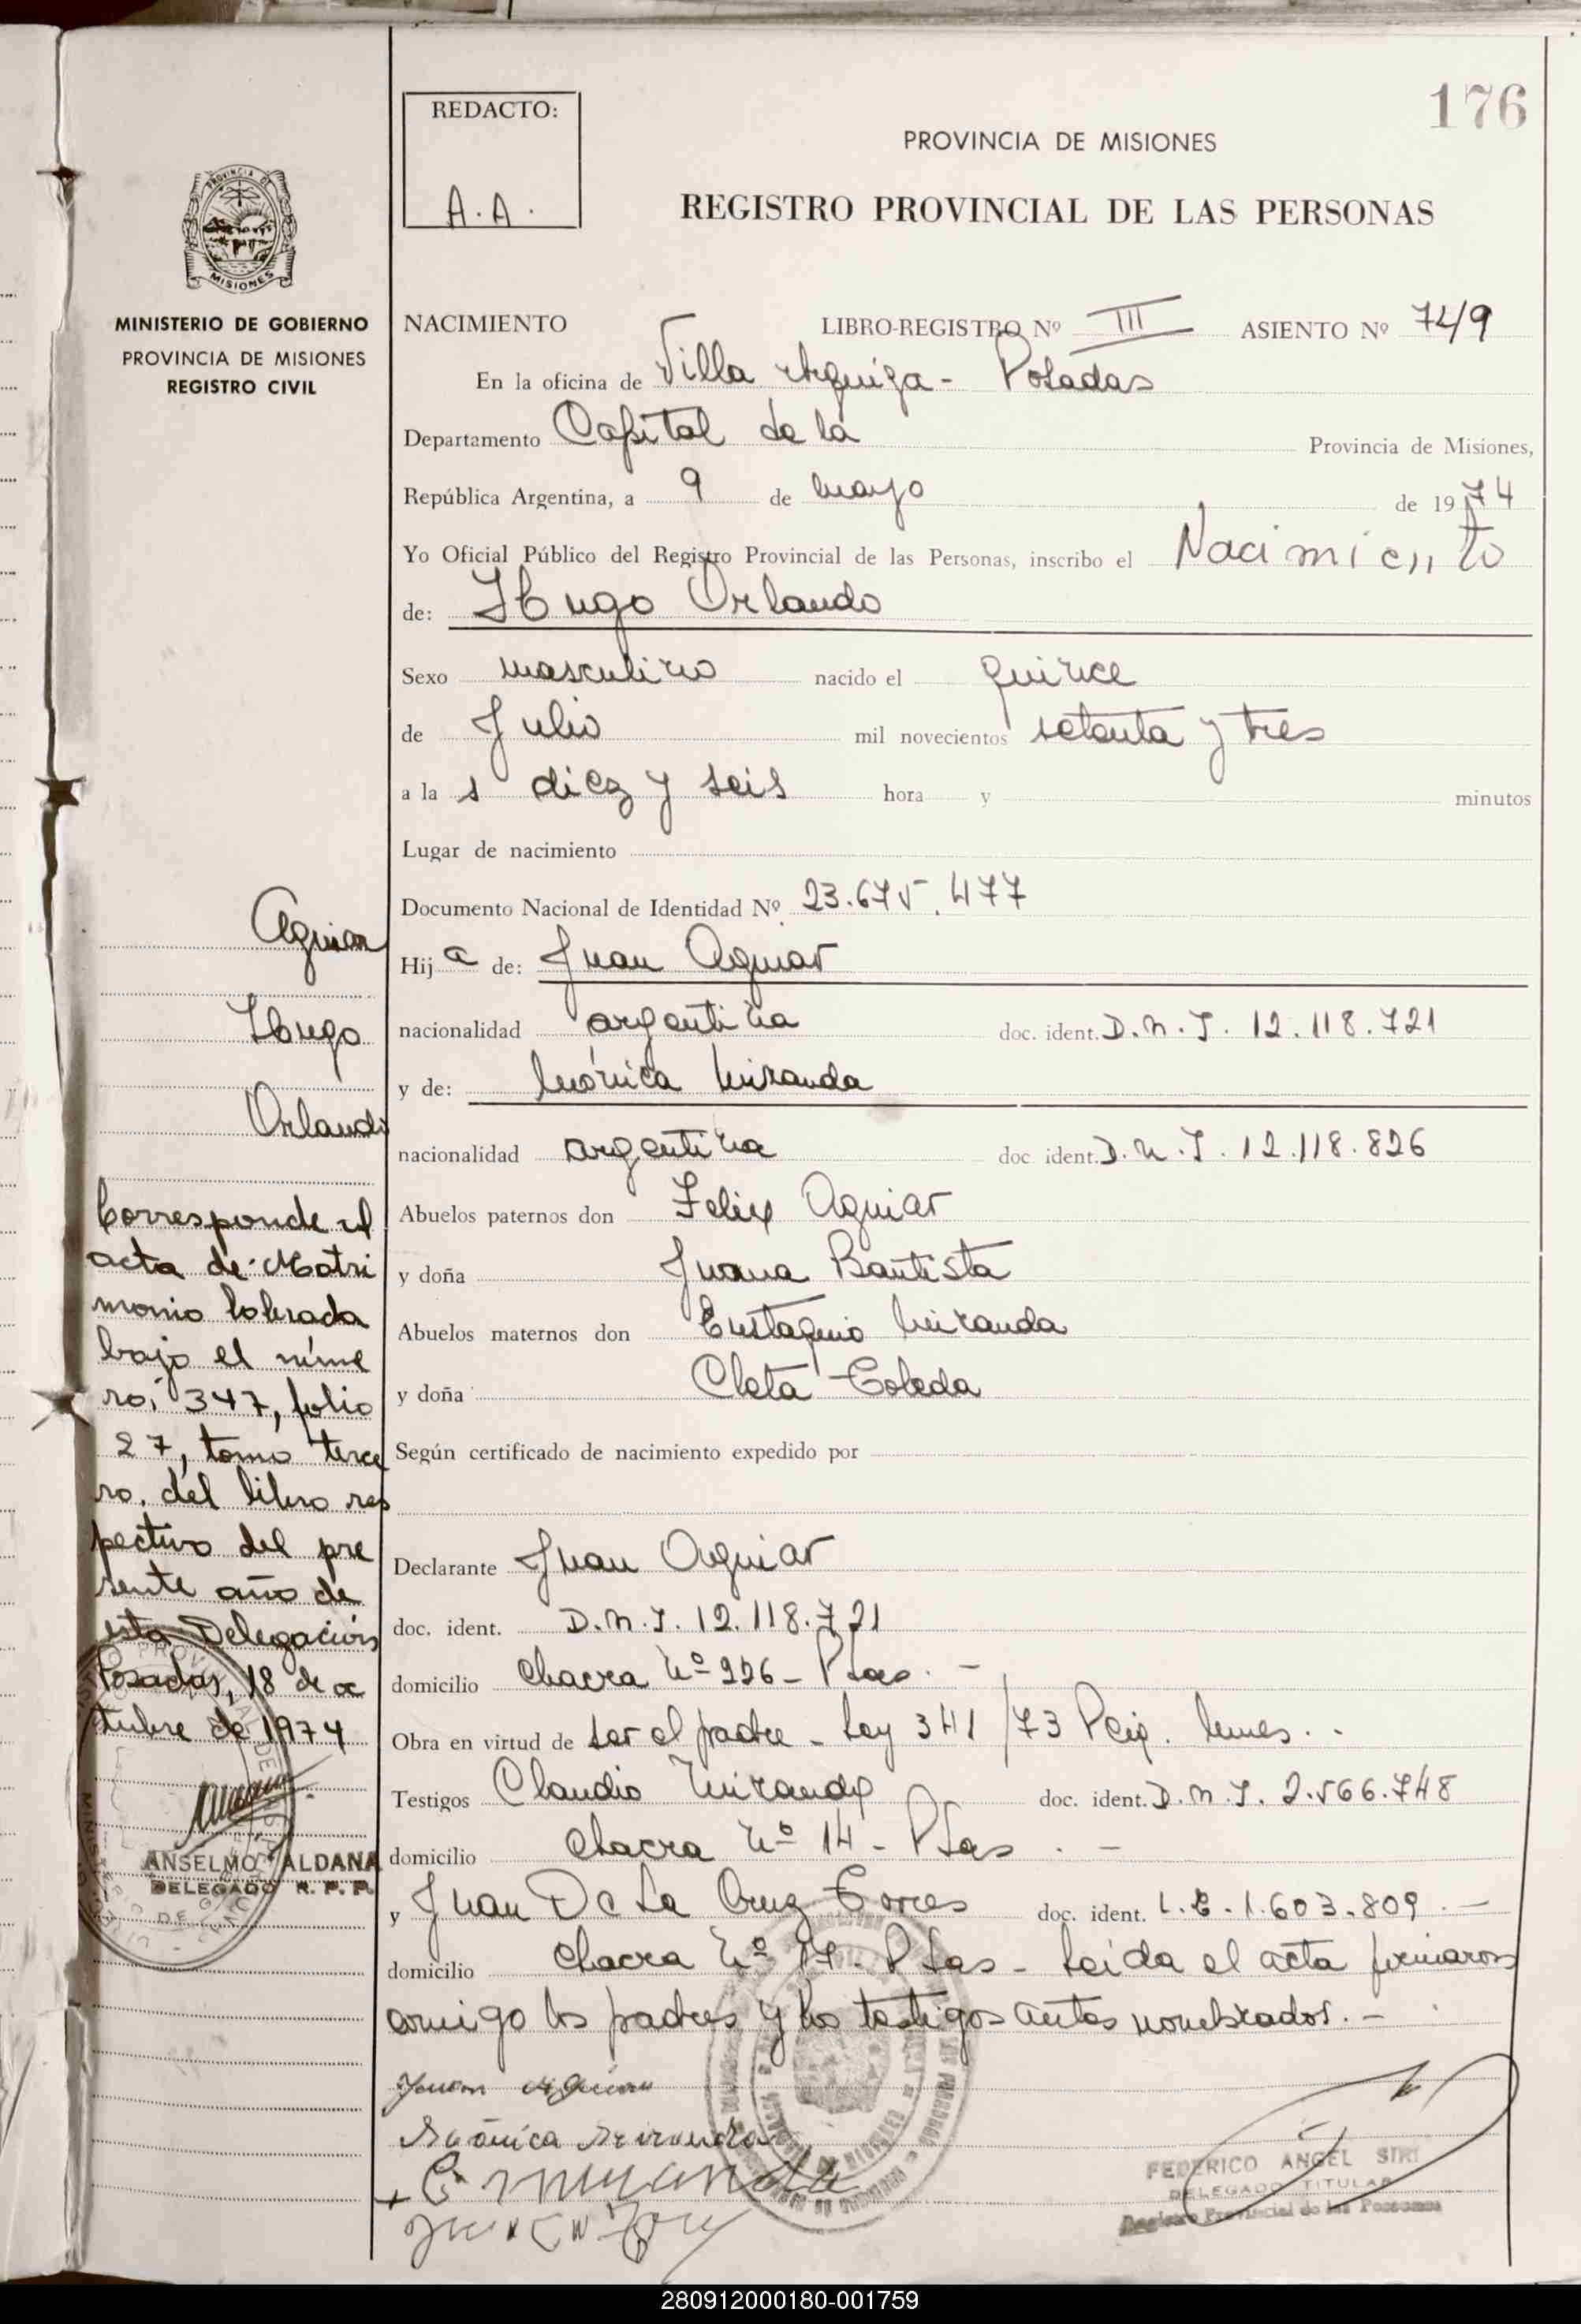 176
REDACTO:
A.A.
PROVINCIA DE MISIONES
REGISTRO PROVINCIAL DE LAS PERSONAS
PROVINCIA DE
MISIONES
MINISTERIO DE GOBIERNO
PROVINCIA DE MISIONES
REGISTRO CIVIL
NACIMIENTO LIBRO-REGISTRO Nº III ASIENTO Nº 74/9
En la oficina de Villa Urquiza - Posadas
Departamento Capital de la Provincia de Misiones,
República Argentina, a 9 de mayo de 1974
Yo Oficial Público del Registro Provincial de las Personas, inscribo el Nacimiento
de: Hugo Orlando
Sexo masculino nacido el quince
de Julio mil novecientos setenta y tres
a la s diez y seis hora y minutos
Lugar de nacimiento
Documento Nacional de Identidad Nº 23.675.477
Hij a de: Juan Aguiar
nacionalidad argentina doc. ident. D.N.I. 12.118.721
y de: Mónica Miranda
nacionalidad argentina doc. ident. D.N.I. 12.118.826
Abuelos paternos don Felix Aguiar
y doña Juana Bautista
Abuelos maternos don Eustaquio Miranda
y doña Cleta Toleda
Según certificado de nacimiento expedido por
Declarante Juan Aguiar
doc. ident. D.N.I. 12.118.721
domicilio Chacra Nº 226 - Pdas. -
Obra en virtud de ser el padre - Ley 341/73
Testigos Claudio Miranda doc. ident. D.N.I. 2.566.748
domicilio Chacra Nº 14 - Pdas. -
y Juan De La Cruz Torres doc. ident. L.E. 1.603.809. -
domicilio Chacra Nº 17 - Pdas - Leída el acta firmaron
comigo los padres y los testigos antes nombrados. -
Juan Aguiar
Mónica Miranda
C Miranda
FEDERICO ANGEL SIRI
DELEGADO TITULAR
Registro Provincial de las Personas
Aguiar
Hugo
Orlando
Corresponde al
acta de Matri
monio labrada
bajo el núme
ro: 347, folio
27, tomo terce
ro, del libro res
pectivo del pre
sente año de
esta Delegación
Posadas, 18 de oc
tubre de 1974
ANSELMO ALDANA
DELEGADO R. P. P.
280912000180-001759